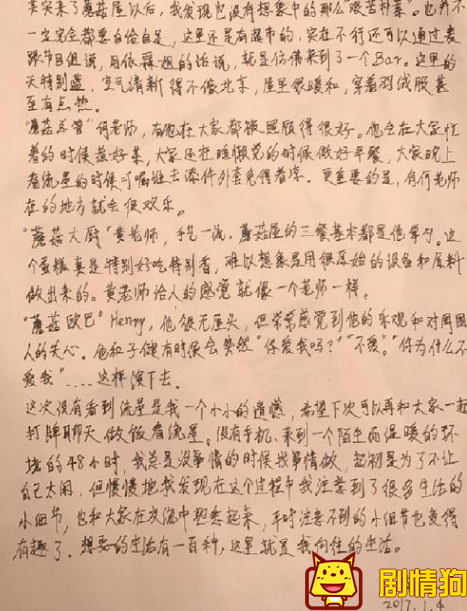 其实来了蘑菇屋以后，我发现也没有想象中的那么"艰苦朴素"。也并不
一定完全都要自给自足，这里还是有超市的，实在不行还可以通过麦
跟节目组说，用依霖姐的话说，就是仿佛来到了一个Bar。这里的
天特别蓝，空气清新得不像北京，屋里很暖和，穿着羽绒服甚
至有点热。
"蘑菇总管"何老师，有他在大家都被照顾得很好。他会在大家忙
着的时候蒸好菜，大家还在睡懒觉的时候做好早餐，大家晚上
看流星的时候叮嘱谁去添件外套免得着凉。更重要的是，有何老师
在的地方就会很欢乐。
"蘑菇大厨"黄老师，手艺一流，蘑菇屋的三餐基本都是他掌勺。这
个蛋糕真是特别好吃特别香，难以想象是用很原始的设备和原料
做出来的。黄老师给人的感觉就像一个老师一样。
"蘑菇欧巴"Henry，他很无厘头，但常常感觉到他的乐观和对周围
人的关心。他和子健有时候会突然"你爱我吗？""不爱。""你为什么不
爱我"……这样演下去。
这次没有看到流星是我一个小小的遗憾，希望下次可以再和大家一起
打牌聊天做饭看流星。没有手机、来到一个陌生而温暖的环
境的48小时，我总是没事情的时候找事情做，起初是为了不让
自己太闲，但慢慢地我发现在这个过程中我注意到了很多生活的
小细节，也和大家在交流中熟悉起来，平时注意不到的小细节也变得
有趣了。想要的生活有一百种，这里就是我向往的生活。
2017.1.4
剧情狗